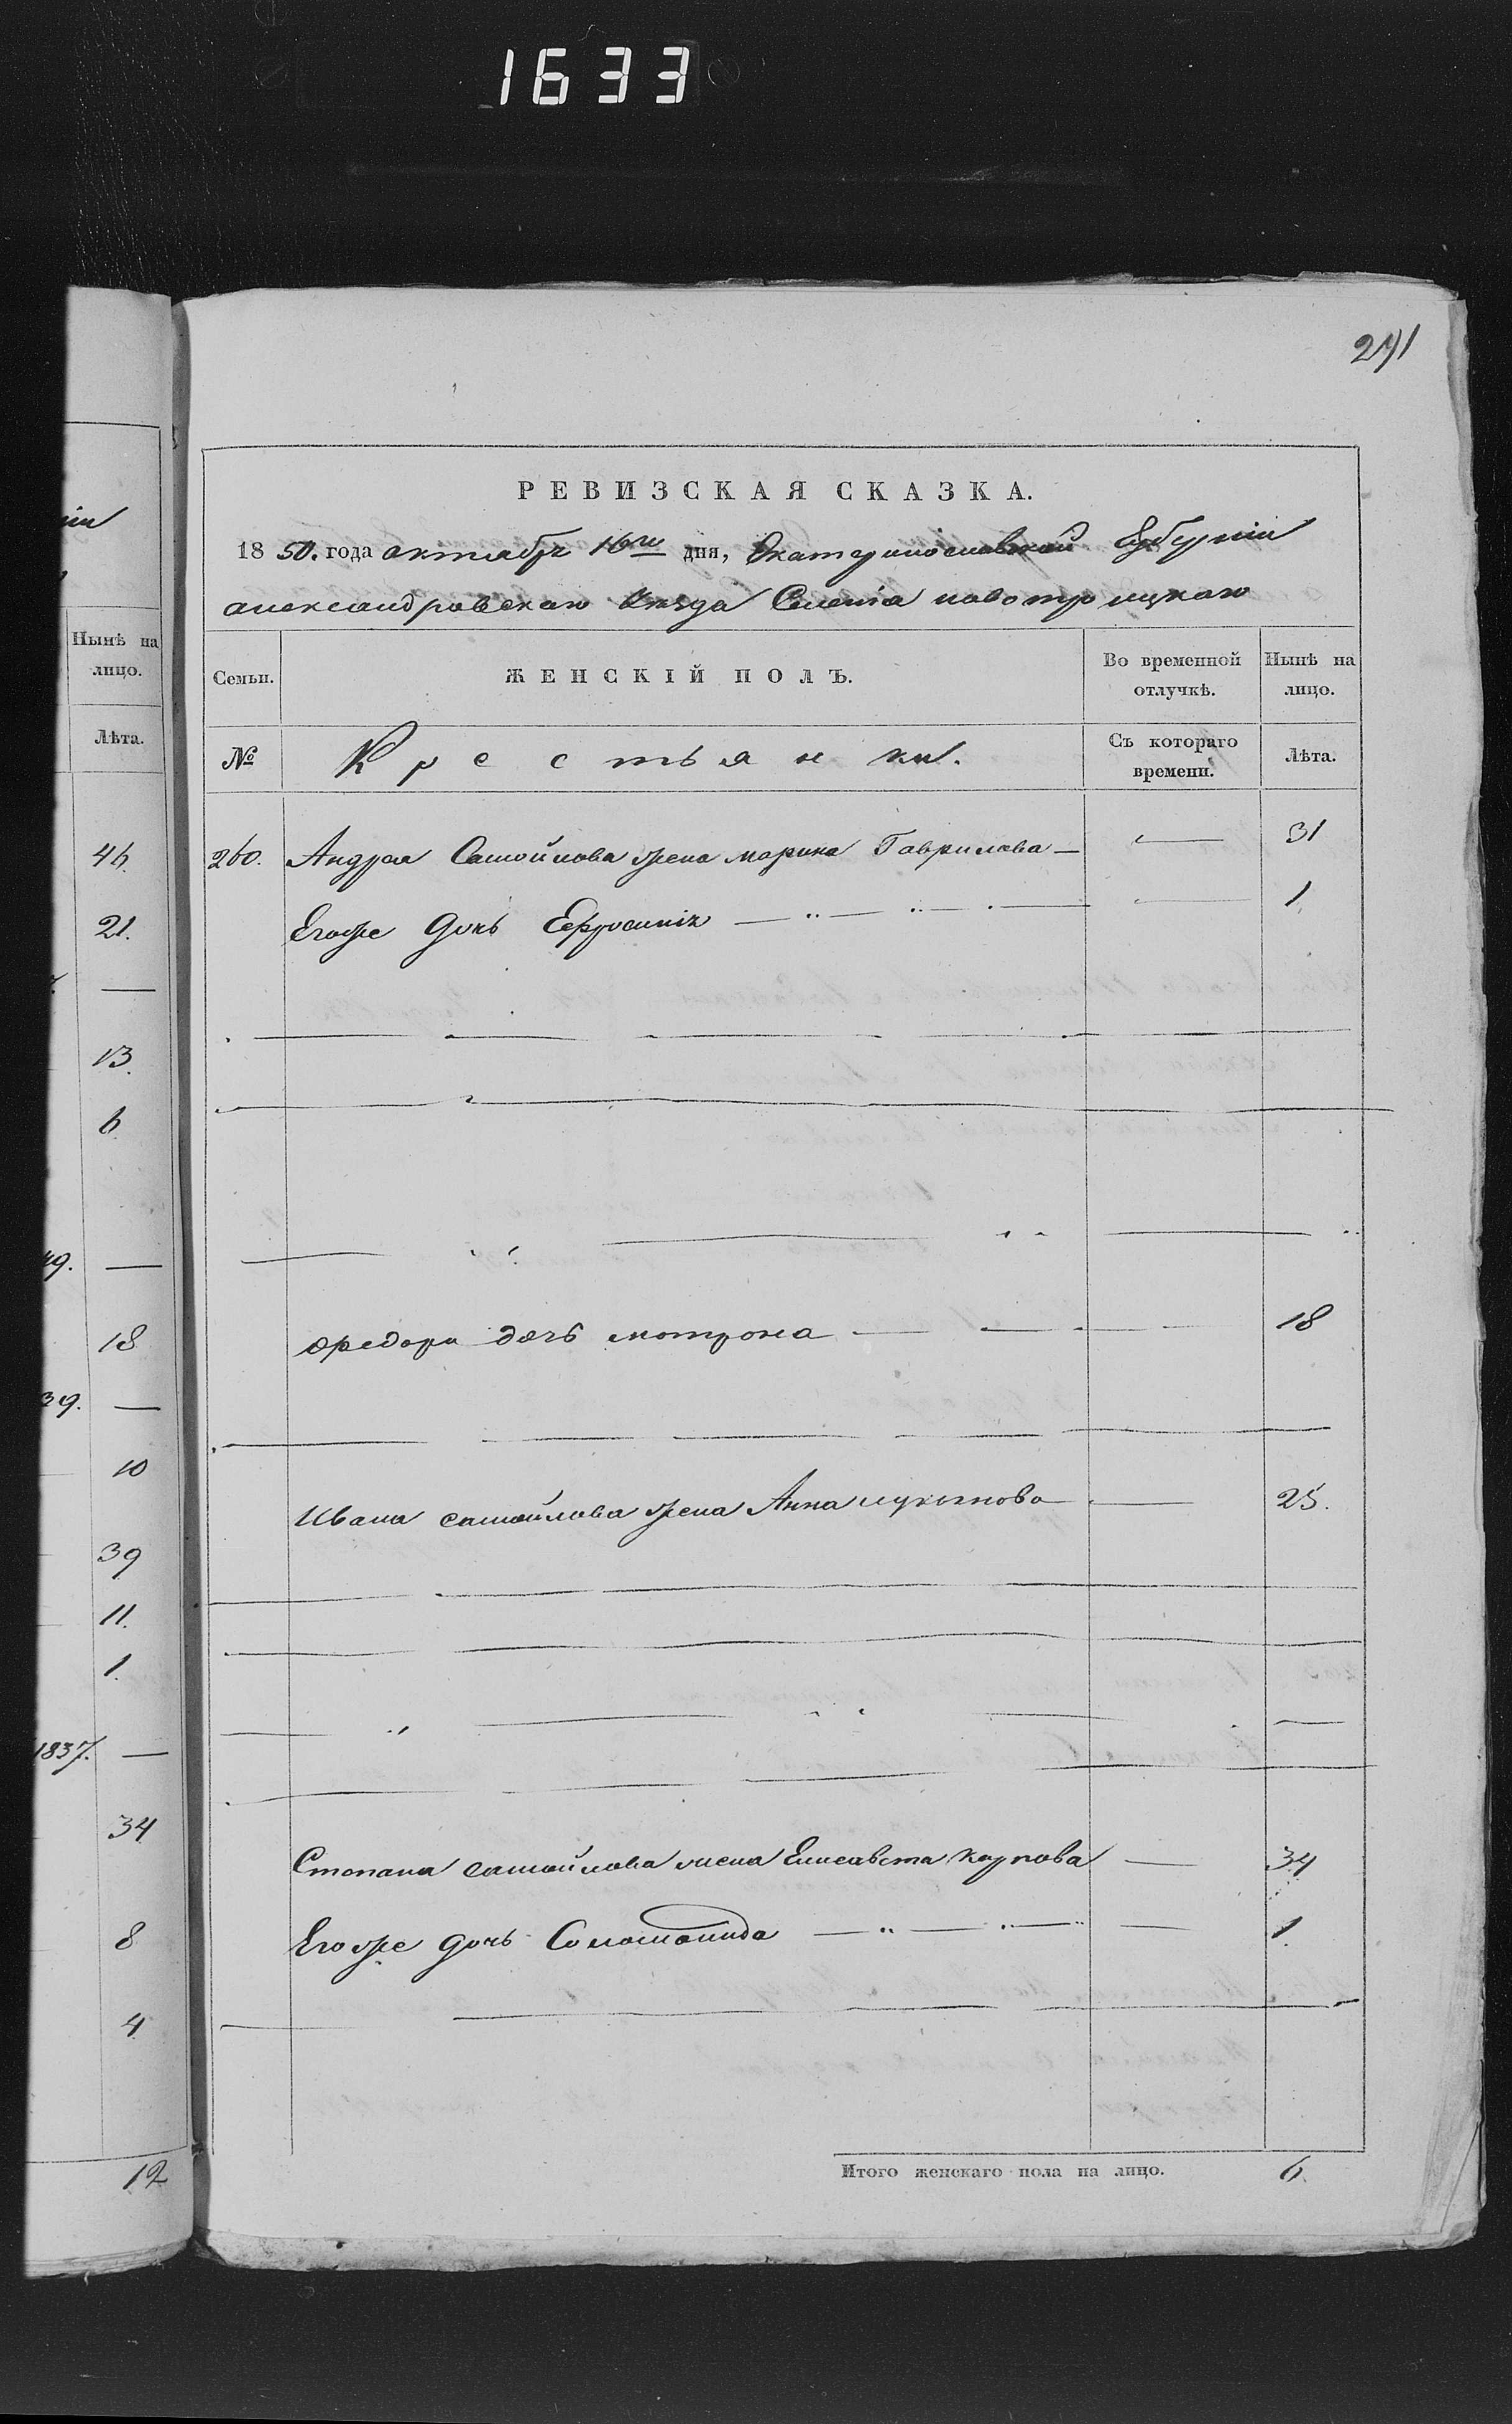 1633
291
РЕВИЗСКАЯ СКАЗКА.
1850. года октября 16го дня, Екатеринославской Губернии
александровскаго Уезда Селенія новотроицкаго
Нынѣ на лицо.
Лѣта.
46.
21.
—
13.
6
49. —
18
39. —
10
39
11.
1.
1837. —
34
8
4
12
Семьи. ЖЕНСКІЙ ПОЛЪ. Во временной отлучкѣ. Нынѣ на лицо.
№ Крестьянки. Съ котораго времени. Лѣта.
260. Андрея Самойлова жена марина Гаврилова — — 31
Егоже дочь Ефросинія — — 1
Федора дочь мотрона — — 18
Ивана самойлова жена Анна — 25.
Степана самойлова жена Елисавета Карпова — 34
Егоже дочь Соломонида — — 1
Итого женскаго пола на лицо. 6.